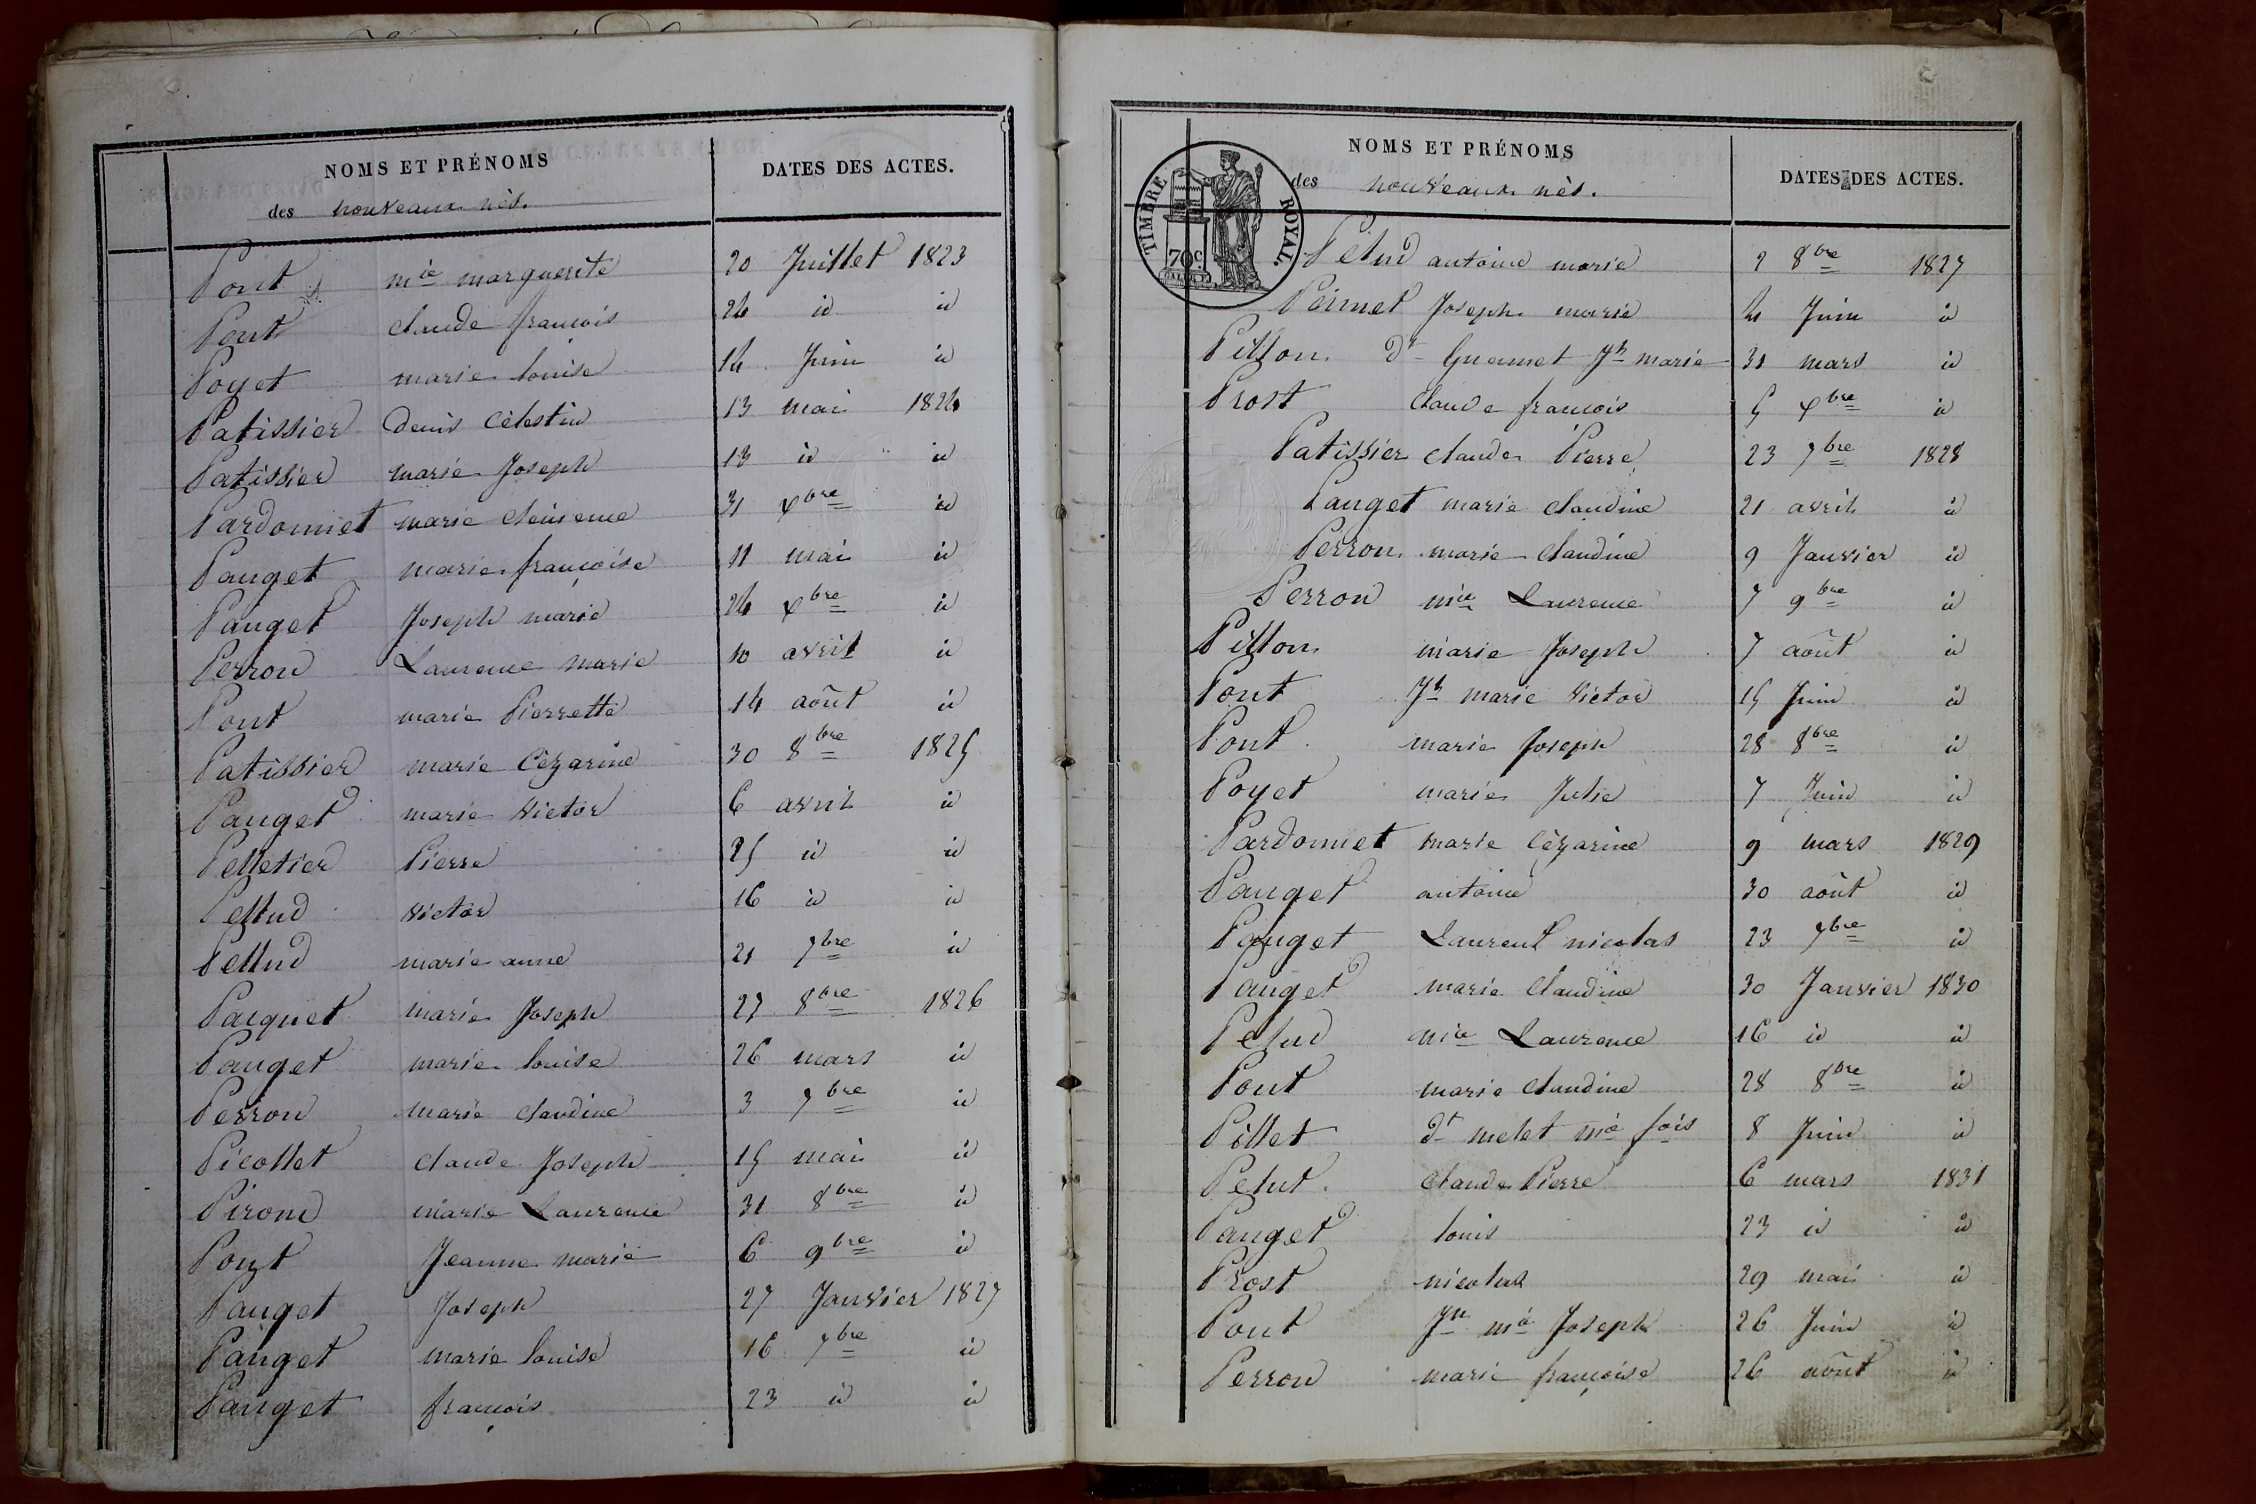 NOMS ET PRÉNOMS
des nouveaux nés.
DATES DES ACTES.
Pont mie marguerite 20 Juillet 1823
Pont claude françois 24 id id
Poyet marie louise 14 Juin id
Patissier denis Célestin 13 mai 1824
Patissier marie Joseph 13 id id
Pardonnet marie clémence 31 xbre id
Pauget marie françoise 11 mai id
Pauget Joseph marie 24 xbre id
Perron Laurence marie 10 avril id
Pont marie Pierrette 14 août id
Patissier marie Cézarine 30 8bre 1825
Pauget marie Victor 6 avril id
Pelletier Pierre 25 id id
Pettud Victor 16 id id
Pettud marie anne 21 7bre id
Pacquet marie Joseph 27 8bre 1826
Pauget marie louise 26 mars id
Perron marie claudine 3 7bre id
Picollet claude Joseph 15 mai id
Pirond marie Laurence 31 8bre id
Pont Jeanne marie 6 9bre id
Pauget Joseph 27 Janvier 1827
Pauget marie louise 16 7bre id
Pauget françois 23 id id
NOMS ET PRÉNOMS
des nouveaux nés.
DATES DES ACTES.
TIMBRE ROYAL
70c.
Petud antoine marie 2 8bre 1827
Joseph marie 4 Juin id
Pillon dt Guermet Jh marie 31 mars id
Prost claude françois 5 xbre id
Patissier claude Pierre 23 7bre 1828
Pauget marie claudine 21 avril id
Perron marie claudine 9 Janvier id
Perron mie Laurence 7 9bre id
Pillon marie Joseph 7 août id
Pont Jh marie Victor 15 Juin id
Pont marie Joseph 28 8bre id
Poyet marie Julie 7 Juin id
Pardonnet marie Cézarine 9 mars 1829
Pauget antoine 30 août id
Pauget Laurent nicolas 23 7bre id
Pauget marie Claudine 30 Janvier 1830
Petud mie Laurence 16 id id
Pont marie claudine 28 8bre id
Pillet dt melet mie fois 8 Juin id
Petut Claude Pierre 6 mars 1831
Pauget louis 23 id id
Prost nicolas 29 mai id
Pont Jn mie Joseph 26 Juin id
Perron marie françoise 26 août id